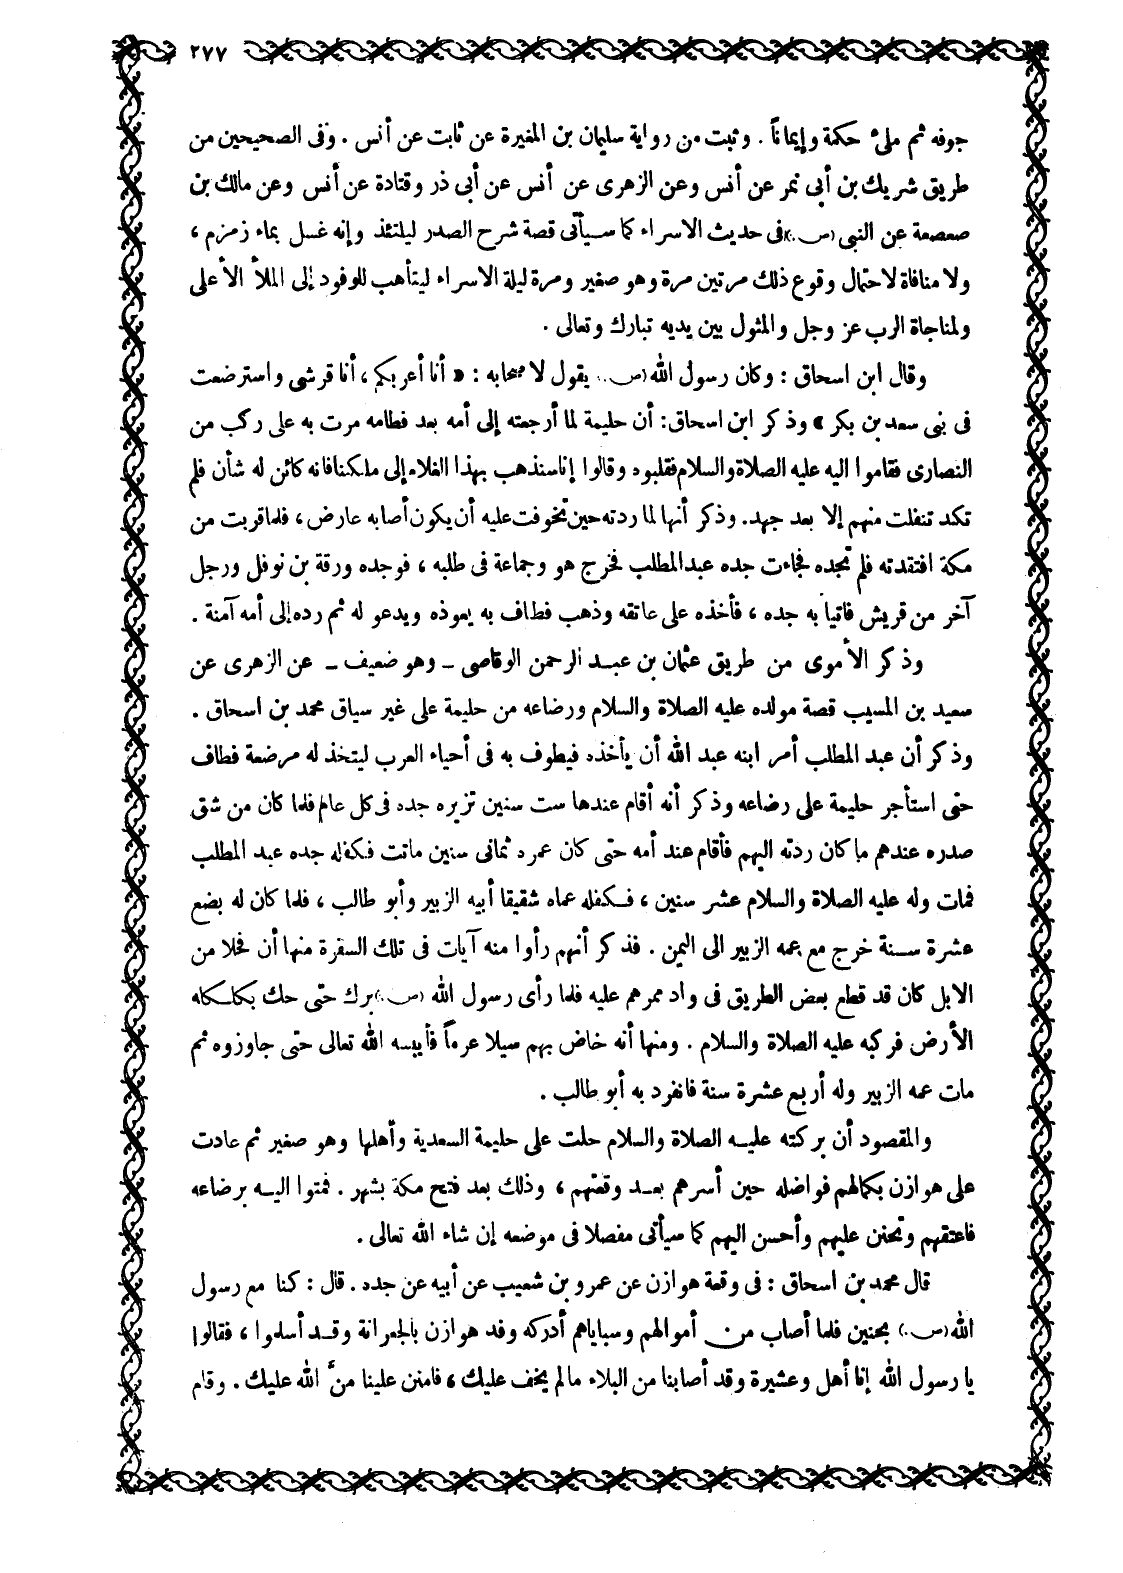 ٢٧٧
جوفه ثم ملئ حكمة وإيماناً . وثبت من رواية سليمان بن المغيرة عن ثابت عن أنس . وفى الصحيحين من
طريق شريك بن أبى نمر عن أنس وعن الزهرى عن أنس عن أبى ذر وقتادة عن أنس وعن مالك بن
صعصعة عن النبى (ص.) فى حديث الاسراء كما سيأتى قصة شرح الصدر ليلتئذ وإنه غسل بماء زمزم ،
ولا منافاة لاحتمال وقوع ذلك مرتين مرة وهو صغير ومرة ليلة الاسراء ليتأهب للوفود إلى الملأ الأعلى
ولمناجاة الرب عز وجل والمثول بين يديه تبارك وتعالى .
وقال ابن اسحاق : وكان رسول الله (ص.) يقول لأصحابه : « أنا أعربكم ، أنا قرشى واسترضعت
فى بنى سعد بن بكر » وذكر ابن اسحاق : أن حليمة لما أرجعته إلى أمه بعد فطامه مرت به على ركب من
النصارى فقاموا اليه عليه الصلاة والسلام فقلبوه وقالوا إنا سنذهب بهذا الغلام إلى ملكنا فانه كائن له شأن فلم
تكد تنفلت منهم إلا بعد جهد. وذكر أنها لما ردته حين تخوفت عليه أن يكون أصابه عارض ، فلما قربت من
مكة افتقدته فلم تجده فجاءت جده عبد المطلب فخرج هو وجماعة فى طلبه ، فوجده ورقة بن نوفل ورجل
آخر من قريش فاتيا به جده ، فأخذه على عاتقه وذهب فطاف به يعوذه ويدعو له ثم رده إلى أمه آمنة .
وذكر الأموى من طريق عثمان بن عبد الرحمن الوقاصى ــ وهو ضعيف ــ عن الزهرى عن
سعيد بن المسيب قصة مولده عليه الصلاة والسلام ورضاعه من حليمة على غير سياق محمد بن اسحاق .
وذكر أن عبد المطلب أمر ابنه عبد الله أن يأخذه فيطوف به فى أحياء العرب ليتخذ له مرضعة فطاف
حتى استأجر حليمة على رضاعه وذكر أنه أقام عندها ست سنين تزيره جده فى كل عام فلما كان من شق
صدره عندهم ما كان ردته اليهم فأقام عند أمه حتى كان عمره ثمانى سنين ماتت فكفله جده عبد المطلب
فمات وله عليه الصلاة والسلام عشر سنين ، فكفله عماه شقيقا أبيه الزبير وأبو طالب ، فلما كان له بضع
عشرة سنة خرج مع عمه الزبير الى اليمن . فذكر أنهم رأوا منه آيات فى تلك السفرة منها أن فحلا من
الابل كان قد قطع بعض الطريق فى واد ممرهم عليه فلما رأى رسول الله (ص.) برك حتى حك بكلكله
الأرض فركبه عليه الصلاة والسلام . ومنها أنه خاض بهم سيلا عرماً فأيبسه الله تعالى حتى جاوزوه ثم
مات عمه الزبير وله أربع عشرة سنة فانفرد به أبو طالب .
والمقصود أن بركته عليه الصلاة والسلام حلت على حليمة السعدية وأهلها وهو صغير ثم عادت
على هوازن بكمالهم فواضله حين أسرهم بعد وقعتهم ، وذلك بعد فتح مكة بشهر . فمتوا اليه برضاعه
فاعتقهم وتحنن عليهم وأحسن اليهم كما سيأتى مفصلا فى موضعه إن شاء الله تعالى .
قال محمد بن اسحاق : فى وقعة هوازن عن عمرو بن شعيب عن أبيه عن جده . قال : كنا مع رسول
الله (ص.) بحنين فلما أصاب من أموالهم وسباياهم أدركه وفد هوازن بالجعرانة وقد أسلموا ، فقالوا
يا رسول الله إنا أهل وعشيرة وقد أصابنا من البلاء ما لم يخف عليك ، فامنن علينا منَّ الله عليك . وقام